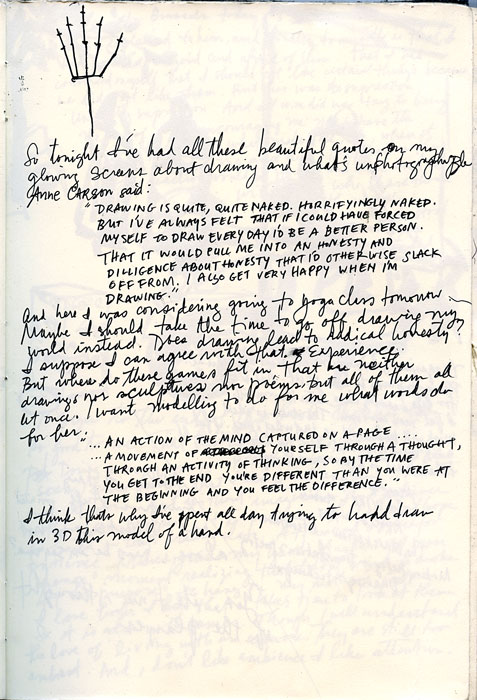 So tonight I've had all these beautiful quotes on my
glowing screens about drawing and what's unphotographable
Anne Carson said:
"DRAWING IS QUITE, QUITE NAKED. HORRIFYINGLY NAKED.
BUT I'VE ALWAYS FELT THAT IF I COULD HAVE FORCED
MYSELF TO DRAW EVERY DAY I'D BE A BETTER PERSON.
THAT IT WOULD PULL ME INTO AN HONESTY AND
DILLIGENCE ABOUT HONESTY THAT I'D OTHERWISE SLACK
OFF FROM. I ALSO GET VERY HAPPY WHEN I'M
DRAWING."
And here I was considering going to yoga class tomorrow
Maybe I should take the time to go off drawing my
world instead. Does drawing lead to radical honesty?
I suppose I can agree with that. Experience.
But where do these games fit in that are neither
drawings nor sculptures nor poems but all of them all
at once. I want modelling to do for me what words do
for her:
"... AN ACTION OF THE MIND CAPTURED ON A PAGE ....
... A MOVEMENT OF YOURSELF THROUGH A THOUGHT,
THROUGH AN ACTIVITY OF THINKING, SO BY THE TIME
YOU GET TO THE END YOU'RE DIFFERENT THAN YOU WERE AT
THE BEGINNING AND YOU FEEL THE DIFFERENCE."
I think thats why I've spent all day trying to hand draw
in 3D this model of a hand.